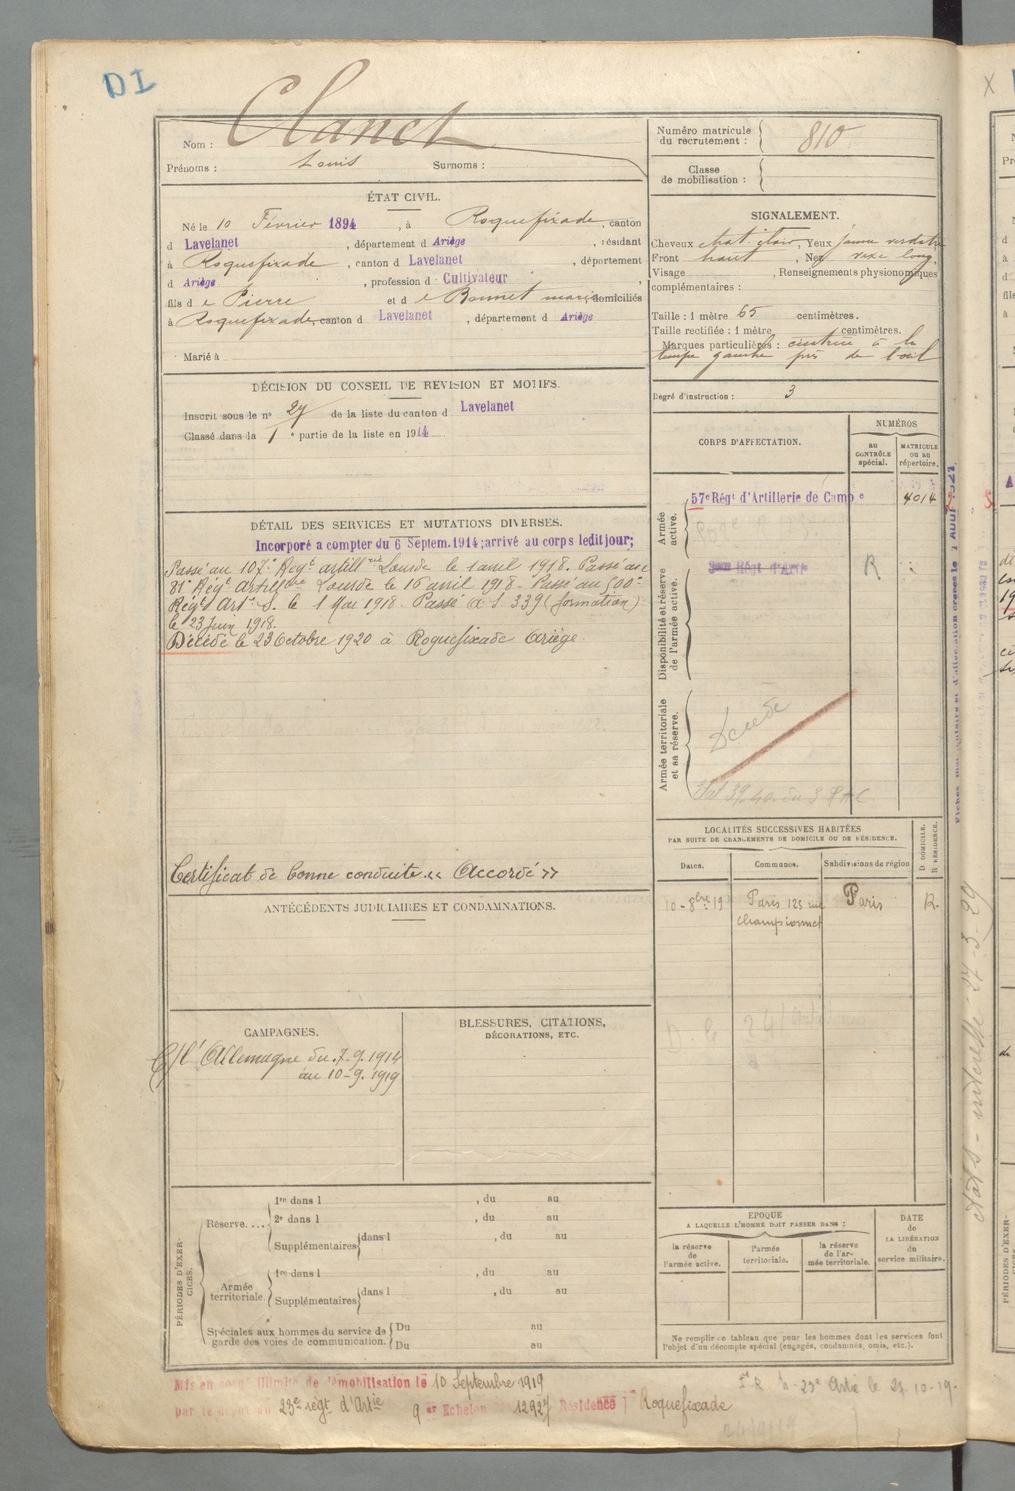 DI
Nom : Clanet
Prénoms : Louis Surnoms :
Numéro matricule du recrutement : 810
Classe de mobilisation :
ÉTAT CIVIL.
Né le 10 Février 1894, à Roquefixade, canton
d Lavelanet, département d Ariège, résidant
à Roquefixade, canton d Lavelanet, département
d Ariège, profession d Cultivateur,
fils d e Pierre et d e Bonnet domiciliés
à Roquefixade canton d Lavelanet, département d Ariège
Marié à
SIGNALEMENT.
Cheveux chat clair, Yeux jaune verdatre
Front haut, Nez long.
Visage , Renseignements physionomiques
complémentaires :
Taille : 1 mètre 65 centimètres.
Taille rectifiée : 1 mètre centimètres.
Marques particulières : à la
gauche près de l'oeil
Degré d'instruction : 3
DÉCISION DU CONSEIL DE REVISION ET MOTIFS.
Inscrit sous le n° 27 de la liste du canton d Lavelanet
Classé dans la 1 e partie de la liste en 1914
DÉTAIL DES SERVICES ET MUTATIONS DIVERSES.
Incorporé a compter du 6 Septem. 1914; arrivé au corps ledit jour;
Passé au 102e Régt artillrie Lourde le 1 avril 1918. Passé au
81e Régt Artillrie Lourde le 16 avril 1918 - Passé au 500e
Régt d'Art. S. le 1 Mai 1918. Passé A.S. 339 (formation)
le 23 Juin 1918.
Décédé le 23 Octobre 1920 à Roquefixade Ariège.
Certificat de bonne conduite « Accordé »
CORPS D'AFFECTATION.
NUMÉROS
au CONTRÔLE spécial.
MATRICULE ou au répertoire.
Armée active.
57e Régt d'Artillerie de Camp e
4014
Disponibilité et réserve de l'armée active.
R
Armée territoriale et sa réserve.
Décédé
LOCALITÉS SUCCESSIVES HABITÉES
PAR SUITE DE CHANGEMENTS DE DOMICILE OU DE RÉSIDENCE.
D DOMICILE.
R RÉSIDENCE.
Dates. Communes. Subdivisions de région
10-8bre 19 Paris 125 rue Championnet Paris R.
ANTÉCÉDENTS JUDICIAIRES ET CONDAMNATIONS.
CAMPAGNES.
C/ l'Allemagne du 7.9.1914
au 10-9.1919
BLESSURES, CITATIONS,
DÉCORATIONS, ETC.
PÉRIODES D'EXERCICES.
Réserve....
1re dans l , du au
2e dans l , du au
Supplémentaires dans l , du au
Armée territoriale.
1re dans l , du au
Supplémentaires dans l , du au
Spéciales aux hommes du service de garde des voies de communication.
Du au
Du au
EPOQUE
A LAQUELLE L'HOMME DOIT PASSER DANS :
la réserve de l'armée active.
l'armée territoriale.
la réserve de l'armée territoriale.
DATE de LA LIBÉRATION du service militaire.
Ne remplir ce tableau que pour les hommes dont les services font
l'objet d'un décompte spécial (engagés, condamnés, omis, etc.).
Mis en congé illimité de démobilisation le 10 Septembre 1919
par le dépôt du 23e régt d'Artie 9 er Echelon 12927 Résidence Roquefixade
23e Artie le 21-10-19-